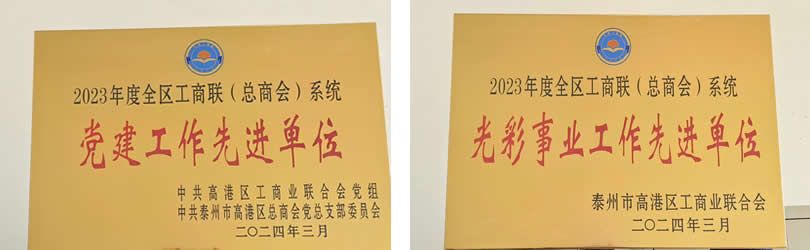 2023年度全区工商联（总商会）系统
党建工作先进单位
中共高港区工商业联合会党组
中共泰州市高港区总商会党总支部委员会
二〇二四年三月
2023年度全区工商联（总商会）系统
光彩事业工作先进单位
泰州市高港区工商业联合会
二〇二四年三月